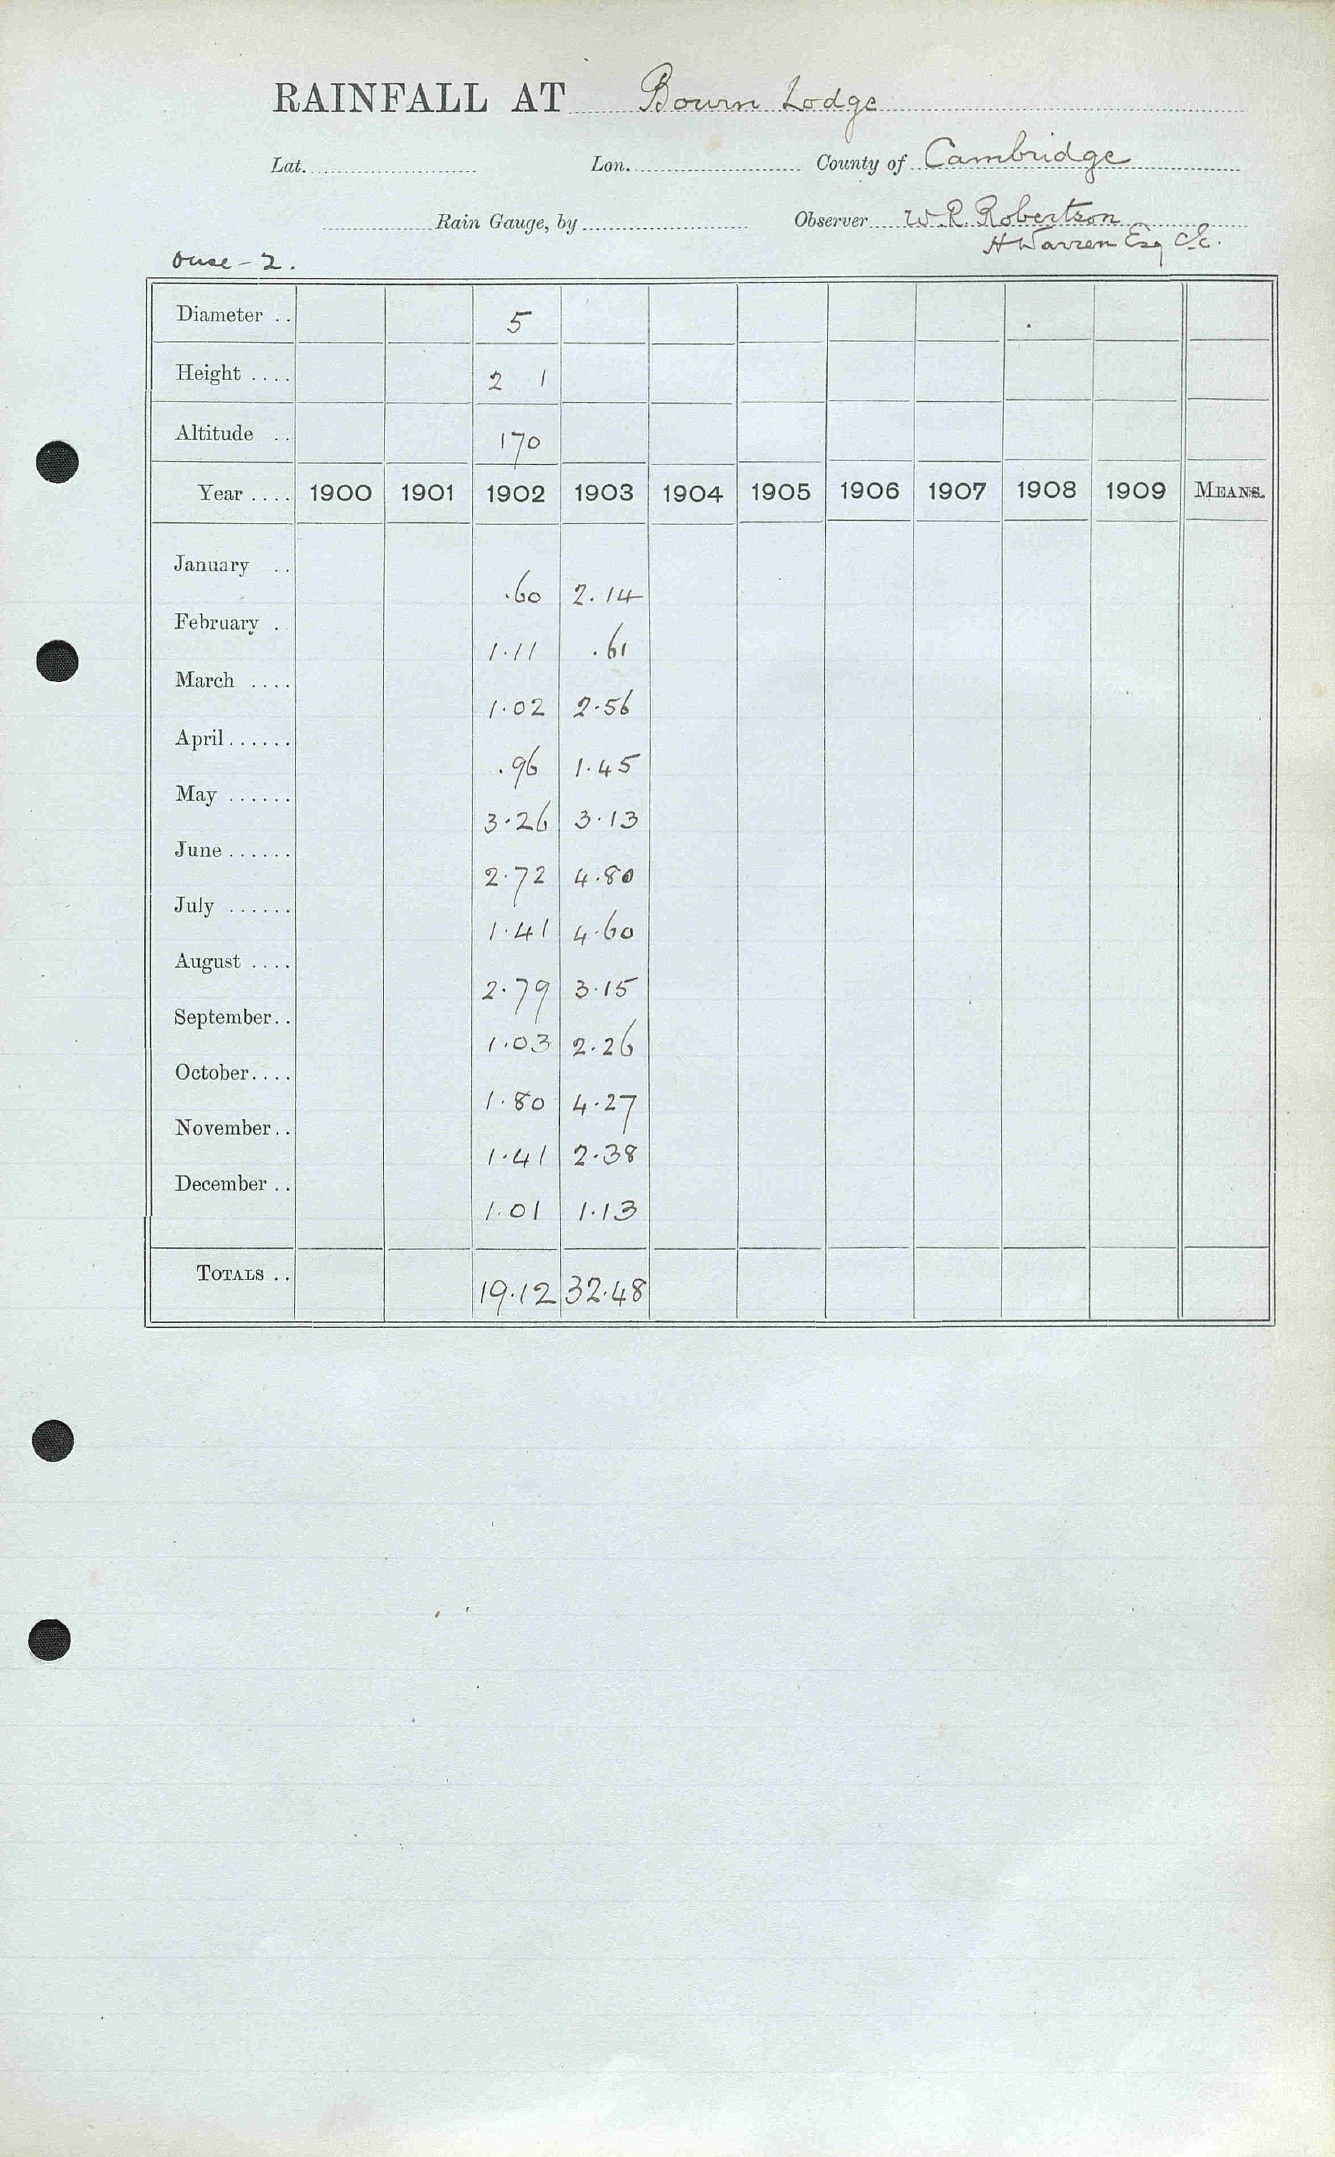 RAINFALL AT Bourn Lodge
Lat. Lon. County of Cambridge
Rain Gauge, by Observer W. R. Robertson
H Warren Esq C.E.
Ouse - 2.
Diameter .. 5
Height .... 2 1
Altitude .. 170
Year .... 1900 1901 1902 1903 1904 1905 1906 1907 1908 1909 MEANS.
January .. .60 2.14
February . 1.11 .61
March .... 1.02 2.56
April ...... .96 1.45
May ...... 3.26 3.13
June ...... 2.72 4.80
July ...... 1.41 4.60
August .... 2.79 3.15
September.. 1.03 2.26
October.... 1.80 4.27
November.. 1.41 2.38
December .. 1.01 1.13
TOTALS .. 19.12 32.48